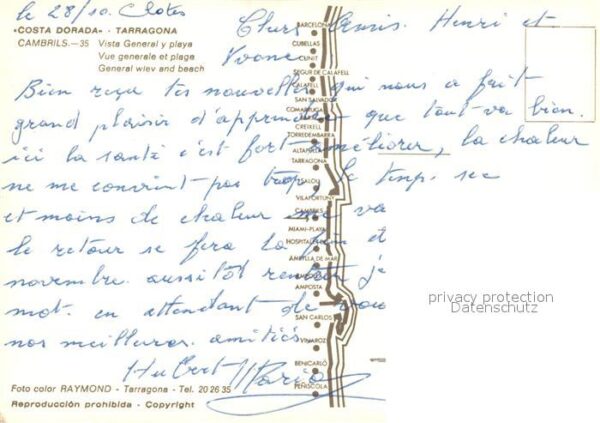 le 28/10.
«COSTA DORADA» - TARRAGONA
CAMBRILS.—35 Vista General y playa
Vue generale et plage
General wiev and beach
Chers Amis. Henri et
Yvone
Bien reçu tes nouvelles qui nous a fait
grand plaisir d'apprendre que tout va bien.
ici la santé c'est fort améliorer, la chaleur
ne me convint pas trop, le temp. sec
et moins de chaleur me va
le retour se fera la fin et
novembre. aussitôt je
mot. en attendant de vous
nos meilleures amitiés
Hubert Maria
BARCELONA
CUBELLAS
CUNIT
SEGUR DE CALAFELL
CALAFELL
SAN SALVADOR
COMARRUGA
CREIXELL
TORREDEMBARRA
ALTAFULLA
TARRAGONA
SALOU
VILAFORTUNY
CAMBRILS
MIAMI-PLAYA
HOSPITALET
AMETLLA DE MAR
AMPOSTA
SAN CARLOS
VINAROZ
BENICARLÓ
PEÑISCOLA
Foto color RAYMOND - Tarragona - Tel. 20 26 35
Reproducción prohibida - Copyright
privacy protection
Datenschutz